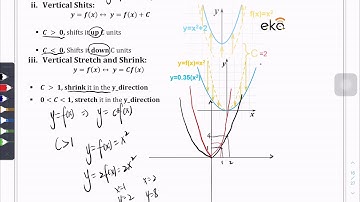 ii. Vertical Shits:
y = f(x) ↔ y = f(x) + C
• C > 0, shifts up C units
• C < 0, Shifts down C units
iii. Vertical Stretch and Shrink:
y = f(x) ↔ y = Cf(x)
• C > 1, shrink it in the y_direction
• 0 < C < 1, stretch it in the y_direction
y=f(x) ⇒ y=c·f(x)
C>1
y=f(x)=x²
y=2f(x)=2x²
x=1 x=2
y=2 y=8
y=x²+2
f(x)=x²
eka
C=2
y=f(x)=x²
y=0.35(x²)
x
y
4
1 2
x